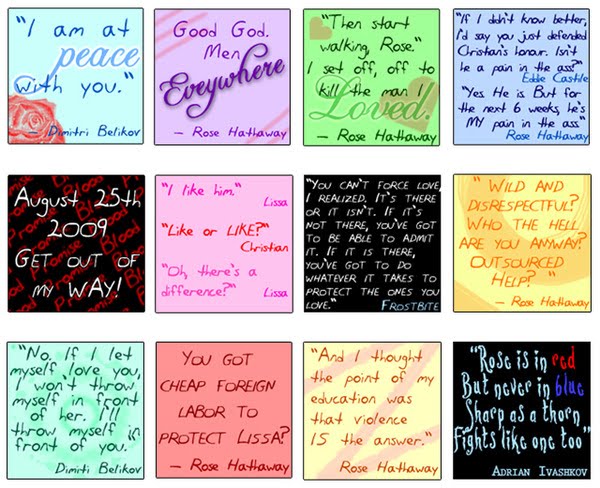 "I am at
peace
with you."
— Dimitri Belikov
Good God.
Men
Eveywhere
— Rose Hathaway
"Then start
walking, Rose."
I set off, off to
kill the man I
Loved.
— Rose Hathaway
"If I didn't know better,
I'd say you just defended
Christian's honour. Isn't
he a pain in the ass?"
Eddie Castile
"Yes He is. But for
the next 6 weeks, he's
MY pain in the ass"
Rose Hathaway
August 25th
2009
Get out of
my WAY!
"I like him."
Lissa
"Like or LIKE?"
Christian
"Oh, there's a
difference?"
Lissa
"You can't force love,
I realized. It's there
or it isn't. If it's
not there, you've got
to be able to admit
it. If it is there,
you've got to do
whatever it takes to
protect the ones you
love."
Frostbite
" Wild and
disrespectful?
Who the hell
are you anyway?
Outsourced
Help? "
— Rose Hathaway
"No. If I let
myself love you,
I won't throw
myself in front
of her. I'll
throw myself in
front of you."
Dimiti Belikov
You got
cheap foreign
labor to
protect Lissa?
— Rose Hathaway
"And I thought
the point of my
education was
that violence
IS the answer."
Rose Hathaway
"Rose is in red
But never in blue
Sharp as a thorn
Fights like one too"
Adrian Ivashkov